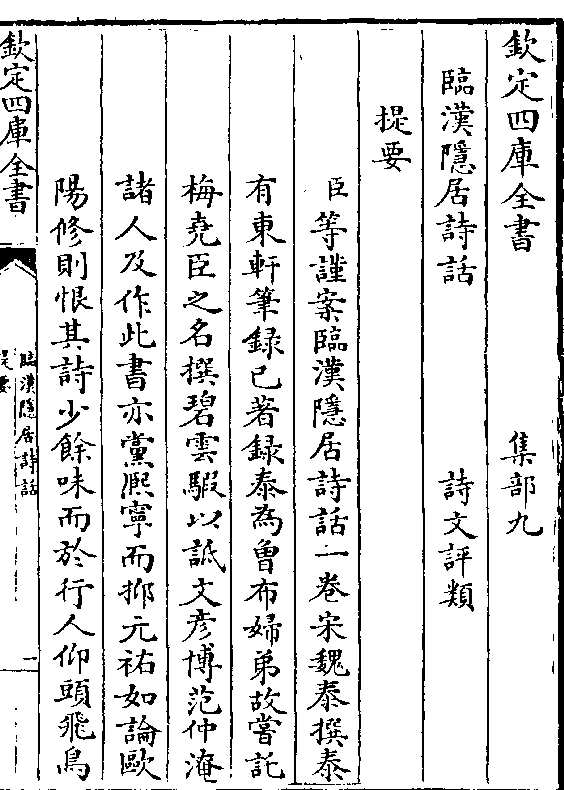 欽定四庫全書　集部九
臨漢隱居詩話　詩文評類
提要
臣等謹案臨漢隱居詩話一卷宋魏泰撰泰
有東軒筆録已著録泰為曾布婦弟故嘗託
梅堯臣之名撰碧雲騢以詆文彦博范仲淹
諸人及作此書亦黨熈寧而抑元祐如論歐
陽修則恨其詩少餘味而於行人仰頭飛鳥
欽定四庫全書
臨漢隱居詩話
提要
一